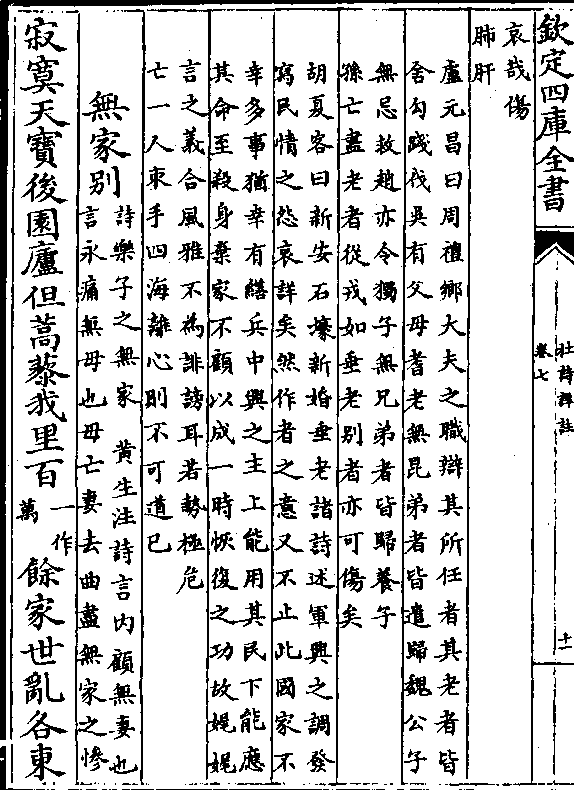 欽定四庫全書
杜詩詳註
卷七
十一
哀哉傷
肺肝
盧元昌曰周禮鄉大夫之職辯其所任者其老者皆
舍勾踐伐吳有父母耆老無昆弟者皆遣歸魏公子
無忌救趙亦令獨子無兄弟者皆歸養子
孫亡盡老者從戎如垂老別者亦可傷矣
胡夏客曰新安石壕新婚垂老諸詩述軍興之調發
寫民情之怨哀詳矣然作者之意又不止此國家不
幸多事猶幸有繕兵中興之主上能用其民下能應
其命至殺身棄家不顧以成一時恢復之功故娓娓
言之義合風雅不為誹謗耳若勢極危
亡一人束手四海離心則不可道已
無家別
詩樂子之無家 黃生注詩言内顧無妻也
言永痛無母也母亡妻去曲盡無家之慘
寂寞天寶後園廬但蒿藜我里百一作萬餘家世亂各東